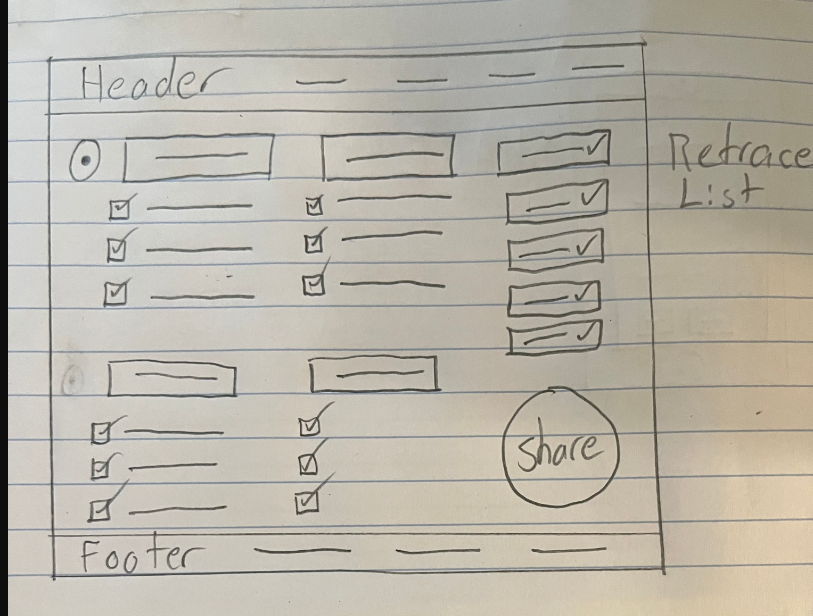 Header
Retrace
List
Share
Footer